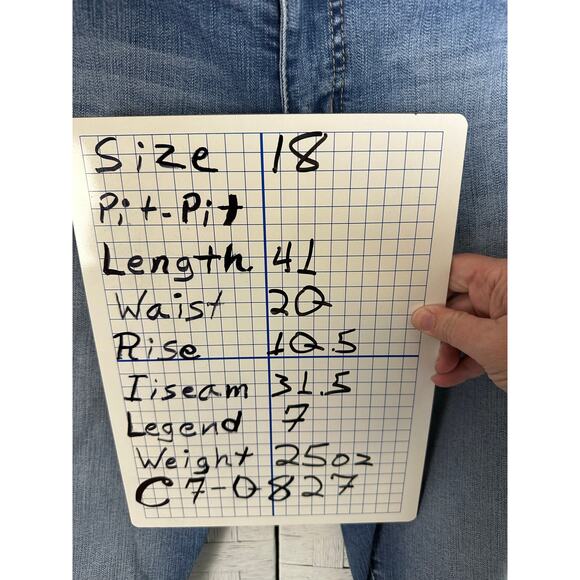 Size 18
Pit-Pit
Length 41
Waist 20
Rise 10.5
Iiseam 31.5
Legend 7
Weight 25oz
C7-0827